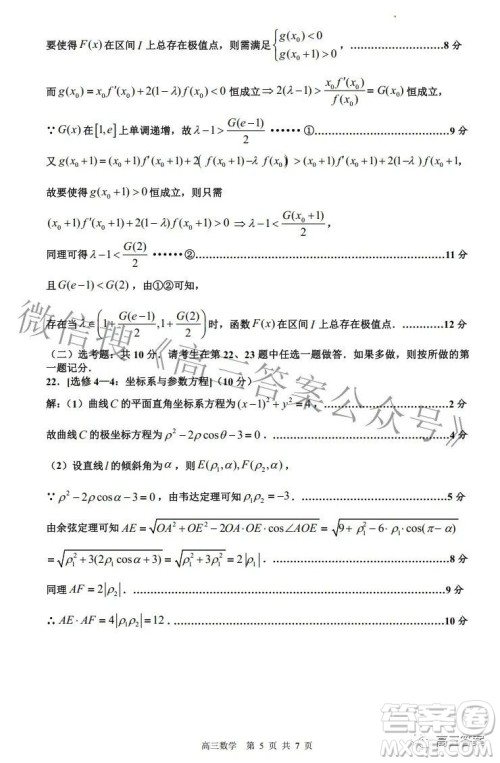 要使得F(x)在区间I上总存在极值点，则需满足{g(x₀)<0 g(x₀+1)>0，……8分
而g(x₀)=x₀f′(x₀)+2(1-λ)f(x₀)<0恒成立⇒2(λ-1)>x₀f′(x₀)/f(x₀)=G(x₀)恒成立，
∵G(x)在[1,e]上单调递增，故λ-1>G(e-1)/2 ······①……9分
又g(x₀+1)=(x₀+1)f′(x₀+1)+2(f(x₀+1)-λf(x₀+1))=(x₀+1)f′(x₀+1)+2(1-λ)f(x₀+1)，
故要使得g(x₀+1)>0恒成立，则只需
(x₀+1)f′(x₀+1)+2(1-λ)f(x₀+1)>0⇒λ-1<G(x₀+1)/2，
同理可得λ-1<G(2)/2 ······②……11分
且G(e-1)<G(2)，由①②可知，
存在当λ∈(1+G(e-1)/2,1+G(2)/2)时，函数F(x)在区间I上总存在极值点．……12分
（二）选考题：共10分．请考生在第22、23题中任选一题做答．如果多做，则按所做的第
一题记分．
22．[选修4—4：坐标系与参数方程]（10分）
解：（1）曲线C的平面直角坐标系方程为(x-1)²+y²=4．……2分
故曲线C的极坐标方程为ρ²-2ρcosθ-3=0．……4分
（2）设直线l的倾斜角为α，则E(ρ₁,α),F(ρ₂,α)，
∵ρ²-2ρcosα-3=0，由韦达定理可知ρ₁ρ₂=-3．……5分
由余弦定理可知AE=√(OA²+OE²-2OA·OE·cos∠AOE)=√(9+ρ₁²-6·ρ₁·cos(π-α))
=√(ρ₁²+3(2ρ₁cosα+3))=√(ρ₁²+3ρ₁²)=2|ρ₁|……8分
同理AF=2|ρ₂|．……9分
∴AE·AF=4|ρ₁ρ₂|=12．……10分
高三数学 第 5 页 共 7 页
微信搜《高三答案公众号》
高三答案